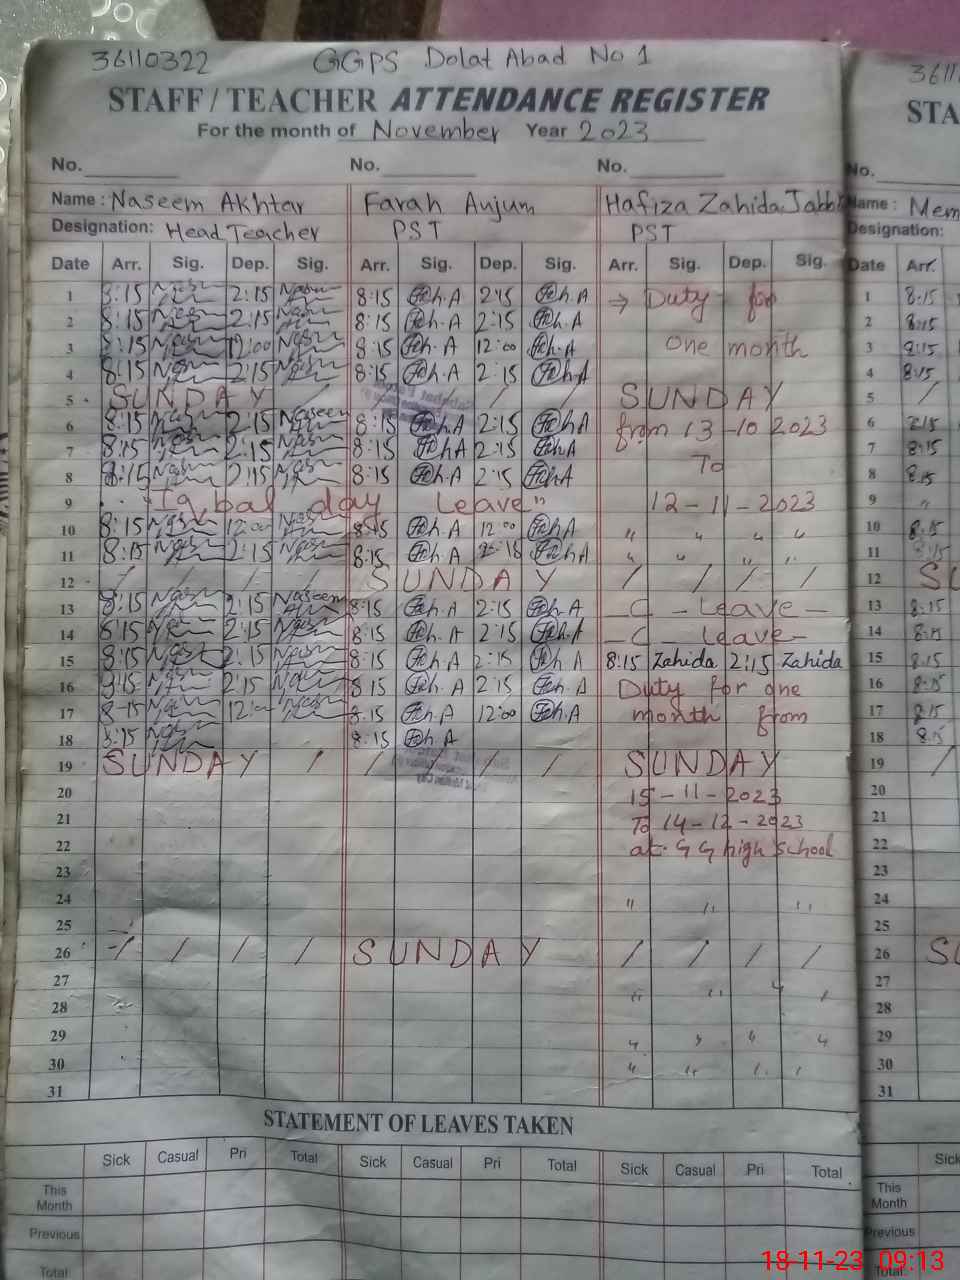 36110322 GGPS Dolat Abad No 1
STAFF / TEACHER ATTENDANCE REGISTER
For the month of November Year 2023
No. No. No.
Name : Naseem Akhtar Farah Anjum Hafiza Zahida
Designation: Head Teacher PST PST
Date Arr. Sig. Dep. Sig. Arr. Sig. Dep. Sig. Arr. Sig. Dep. Sig.
1 8:15 2:15 8:15 2:15 → Duty for
2 8:15 2:15 8:15 2:15
3 8:15 12:00 8:15 12:00 one month
4 8:15 2:15 8:15 2:15
5 SUNDAY / / / SUNDAY
6 8:15 2:15 Naseem 8:15 2:15 from 13-10 2023
7 8:15 2:15 8:15 2:15 To
8 8:15 2:15 8:15 2:15
9 "Iqbal day Leave" 12-11-2023
10 8:15 12:00 8:15 12:00 " " " "
11 8:15 2:15 8:15 " " " "
12 / / / / SUNDAY / / / /
13 8:15 2:15 Naseem 8:15 2:15 - C - Leave -
14 8:15 2:15 8:15 2:15 - C - Leave -
15 8:15 2:15 8:15 2:15 8:15 Zahida 2:15 Zahida
16 8:15 2:15 8:15 2:15 Duty for one
17 8-15 12:00 8:15 12:00 month from
18 8:15 8:15
19 SUNDAY / / / / SUNDAY
20 15-11-2023
21 To 14-12-2023
22 at G G high School
23
24 " " "
25
26 / / / / SUNDAY / / / /
27
28 " " "
29 " " " "
30 " " " "
31
STATEMENT OF LEAVES TAKEN
Sick Casual Pri Total Sick Casual Pri Total Sick Casual Pri Total
This Month
Previous
Total
3611
STA
No.
Name : Mem
Designation:
Date Arr.
1 8:15
2 8:15
3 8:15
4 8:15
5 /
6 8:15
7 8:15
8 8:15
9 "
10 8:15
11 8:15
12 SU
13 8:15
14 8:15
15 8:15
16 8:15
17 8:15
18 8:15
19 /
20
21
22
23
24
25
26 SU
27
28
29
30
31
Sick
This Month
Previous
Total
18-11-23 09:13